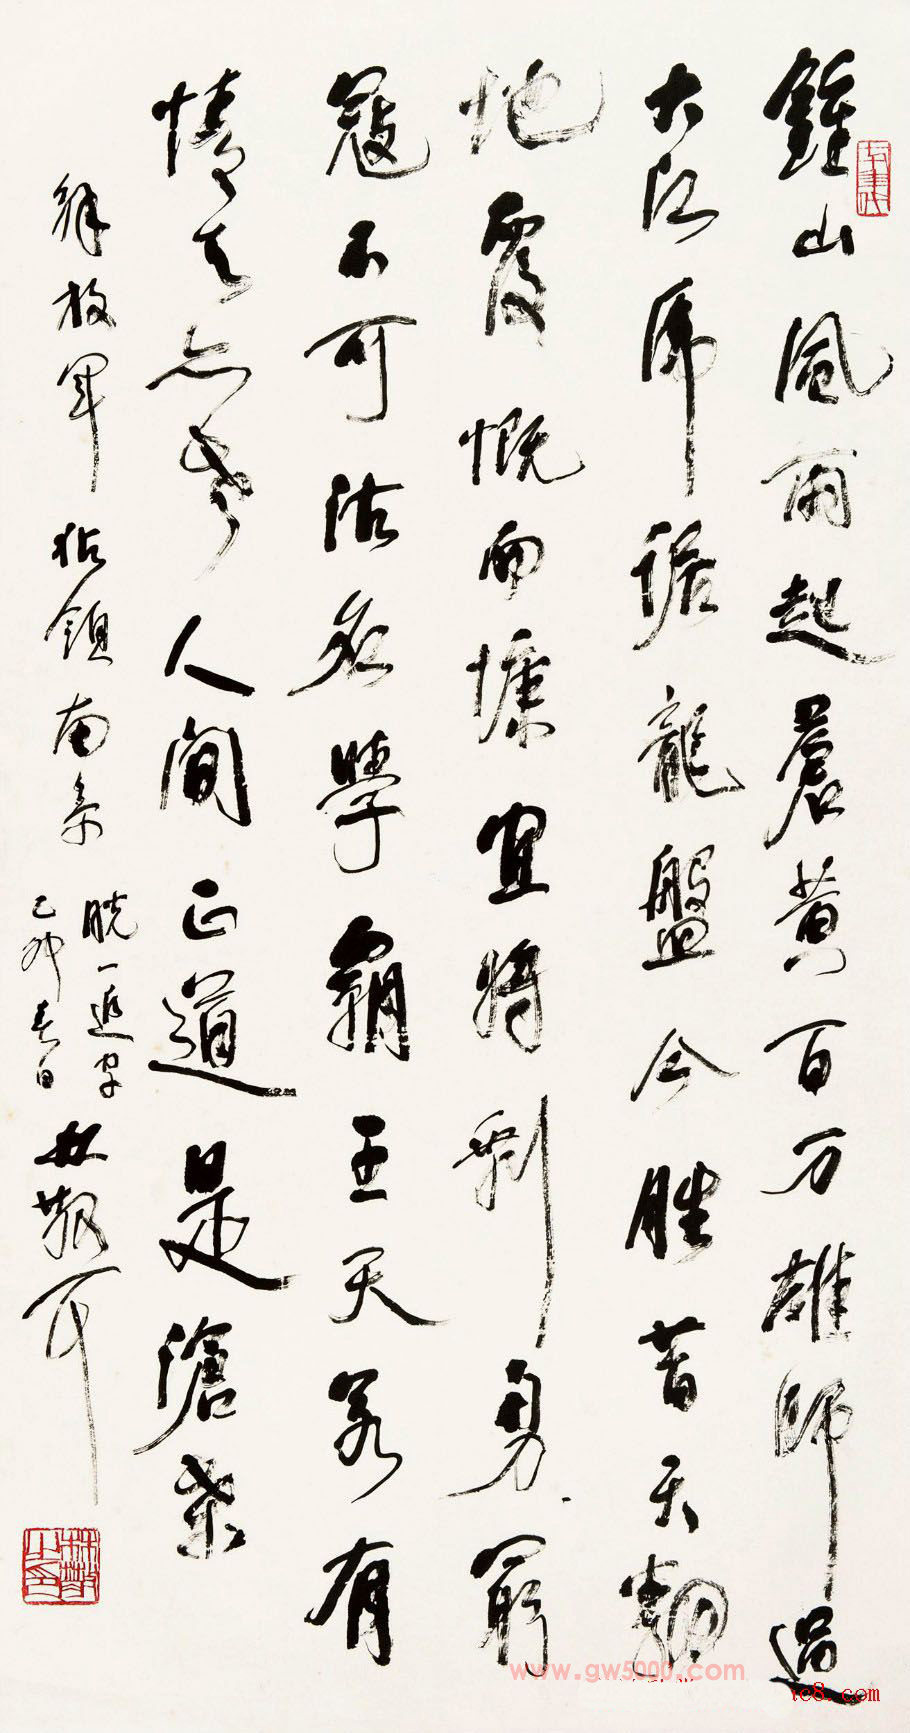 鍾山風雨起蒼黃百万雄師過
大江虎踞龍盤今胜昔天翻
地覆慨而慷宜將剩勇窮
寇不可沽名學霸王天若有
情天亦老人間正道是滄桑
解放軍佔領南京
脱一追字
乙卯春日
林散耳
林散之印
www.gw5000.com
ic8.com